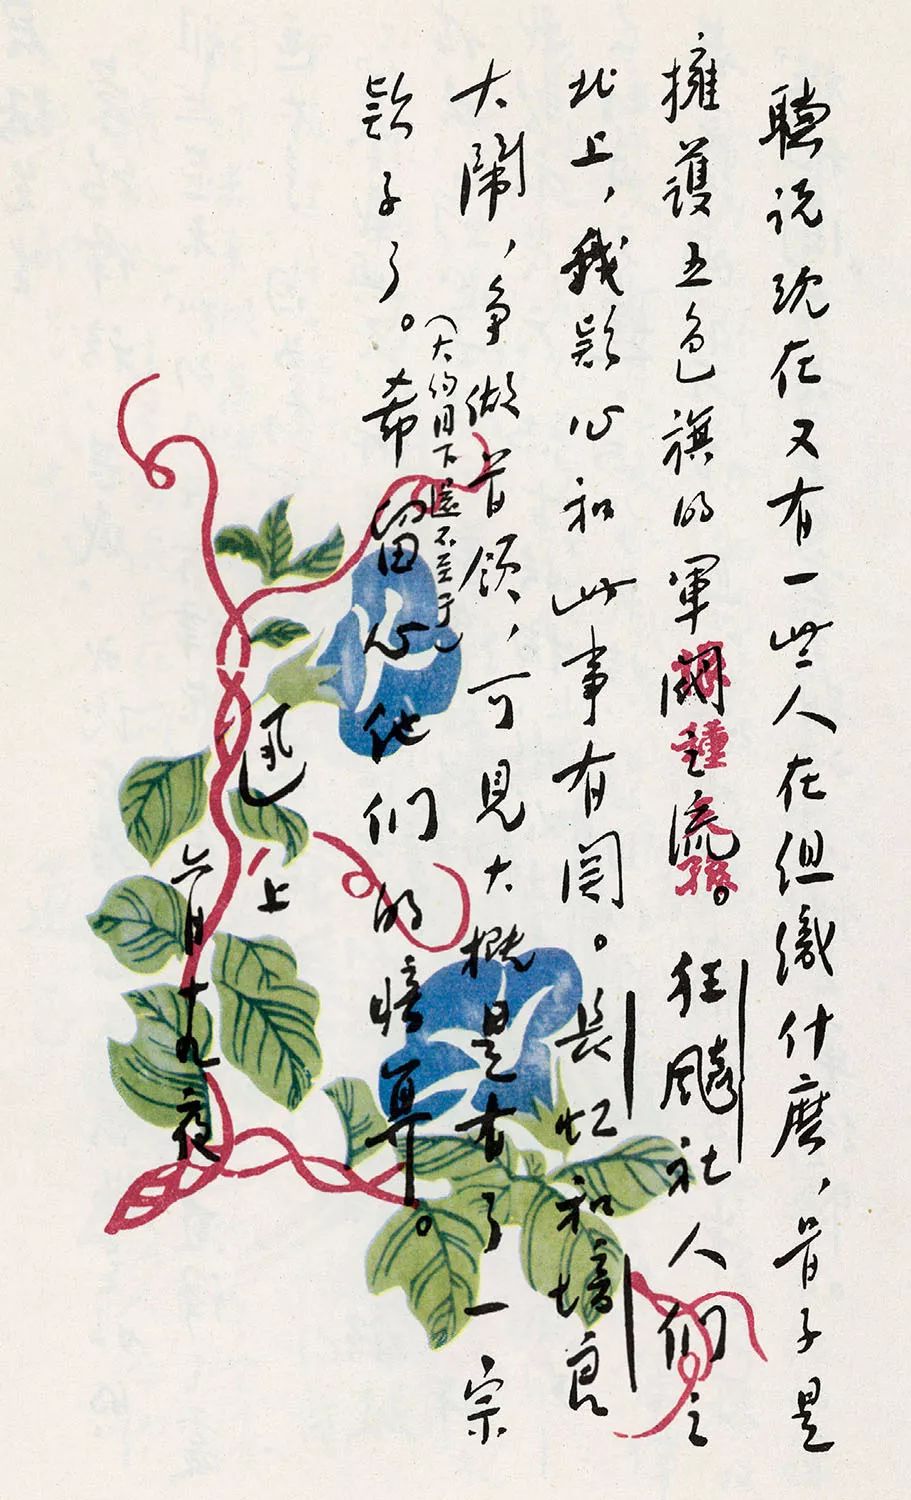 聽说现在又有一些人在组織什麽，骨子是
擁護五色旗的軍阀之流。狂飈社人们之
北上，我疑心和此事有関。長虹和培良
大鬧，争做首领，可見大概是有了一宗
（大约目下還不至于）
欵子了。希留心他们的暗算。
迅 上
六月十九夜